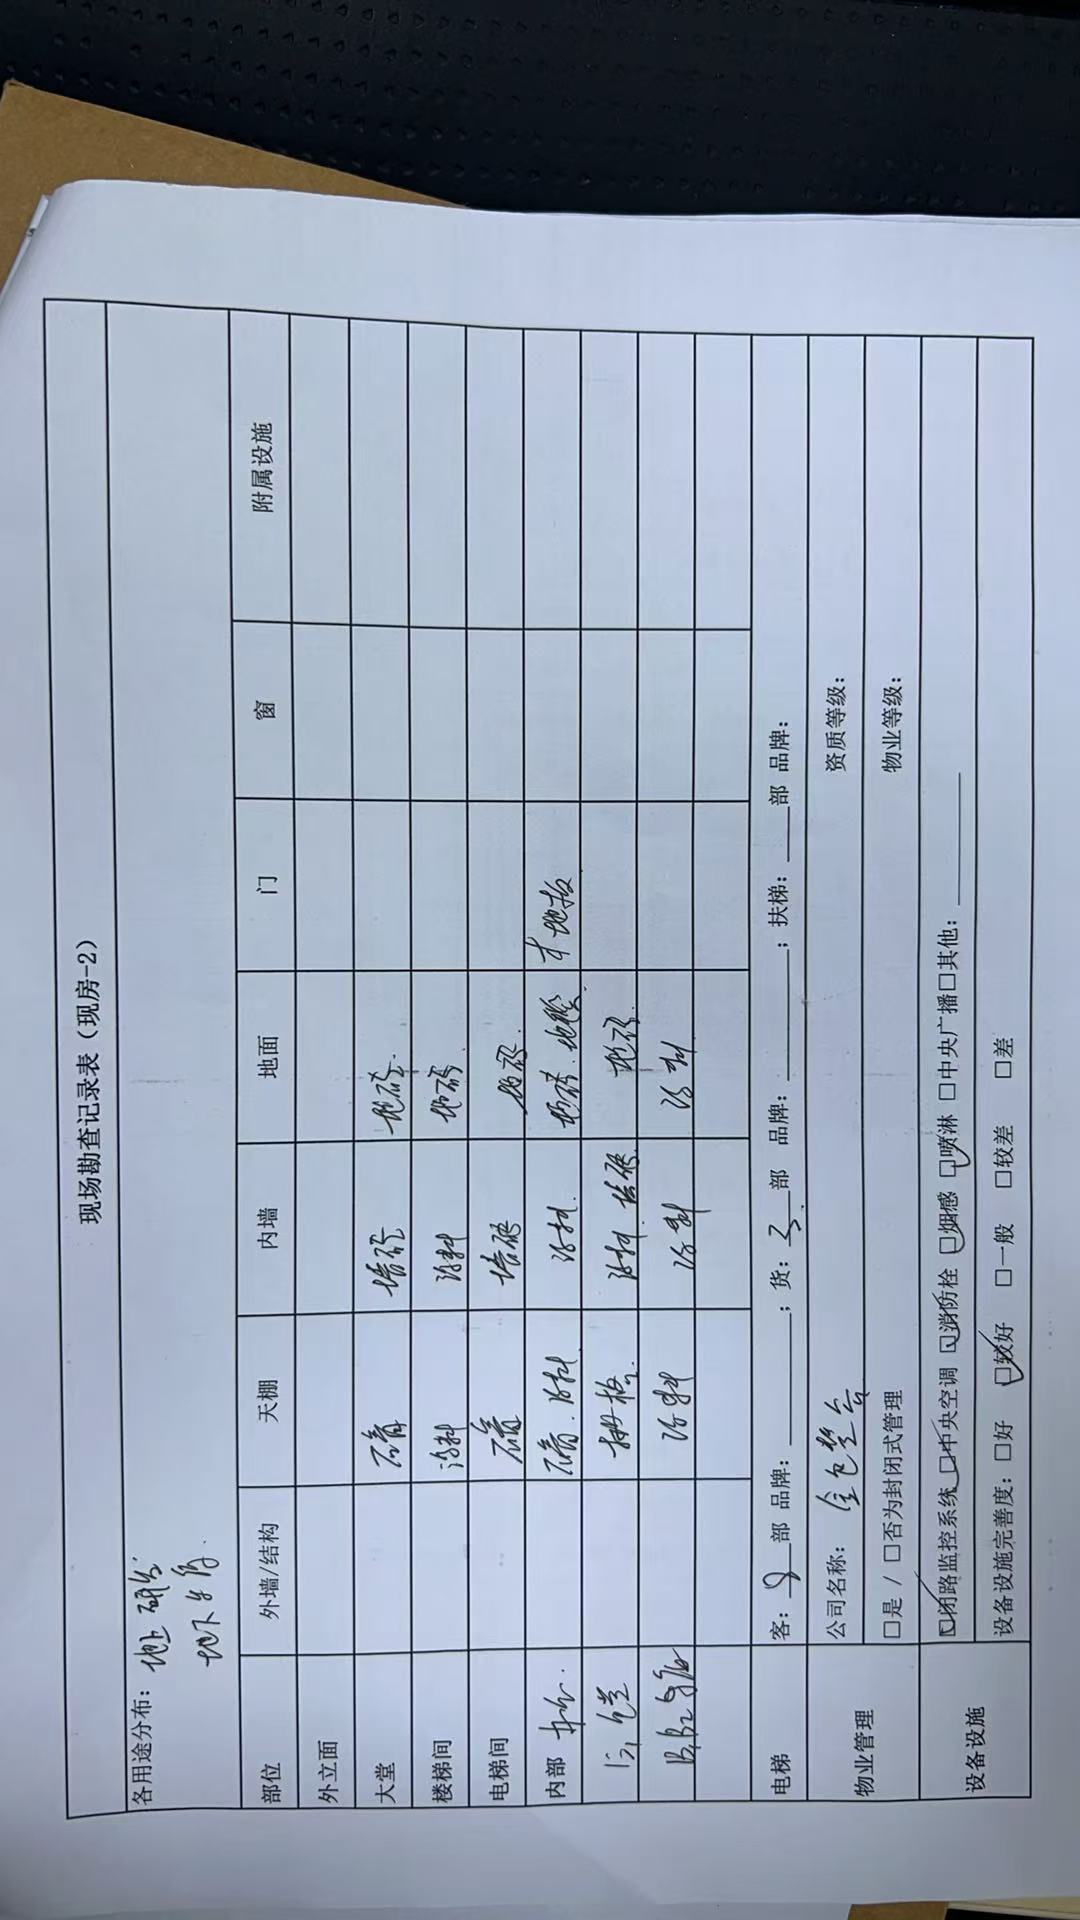 现场勘查记录表（现房-2）
各用途分布：地上研发
地下车库
部位 外墙/结构 天棚 内墙 地面 门 窗 附属设施
外立面
大堂 石膏 墙砖 地砖
楼梯间 涂料 涂料 地砖
电梯间 石膏 墙砖 地砖
内部 石膏、涂料 涂料 地砖、地毯 木地板
涂料、墙砖 地砖
B1,B2车库 涂料 涂料 涂料
电梯 客：8部 品牌：____；货：部 品牌：____；扶梯：__部 品牌：
物业管理 公司名称： 资质等级：
□是 / □否为封闭式管理 物业等级：
设备设施 ☑闭路监控系统 ☑中央空调 ☑消防栓 ☑烟感 ☑喷淋 □中央广播□其他：____
设备设施完善度：□好 ☑较好 □一般 □较差 □差